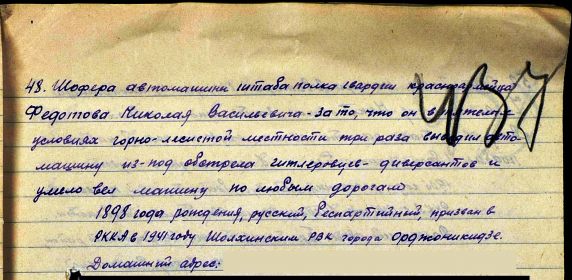 48. Шофера автомашины штаба полка гвардии красноармейца
Федотова Николая Васильевича - за то, что он в тяжелых
условиях горно-лесистой местности три раза выводил авто-
машину из-под обстрела гитлеровцев-диверсантов и
умело вел машину по любым дорогам
1898 года рождения, русский, беспартийный, призван в
РККА в 1941 году РВК города Орджоникидзе.
Домашний адрес: